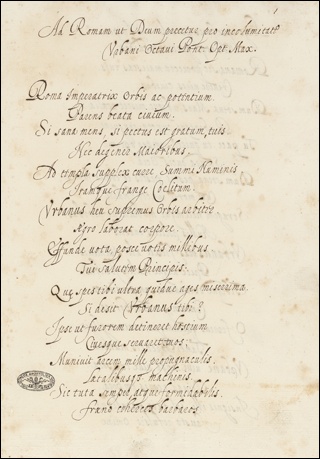 Ad Romam ut Deum precetur, pro incolumitate
Vrbani Octaui Pont. Opt. Max.
Roma Imperatrix Orbis ac potentium
Parens beata ciuium,
Si sana mens, si pectus est gratum, tuis
Nec degener Maioribus,
Ad templa supplex curre Summi Numinis
Iramque frange Coelitum.
Vrbanus heu supremus Orbis arbiter
Aegro laborat corpore.
Effunde uota, posce uotis millibus
Tui salutem Principis.
Quae spes tibi ultra, quidue ages miserrima
Si desit Vrbanus tibi?
Ipse ut furorem detineret hostium
Ciuesque seruaret tuos,
Muniuit arcem mille propugnaculis,
machinis.
Sic tuta semper, atque formidabilis
barbaros